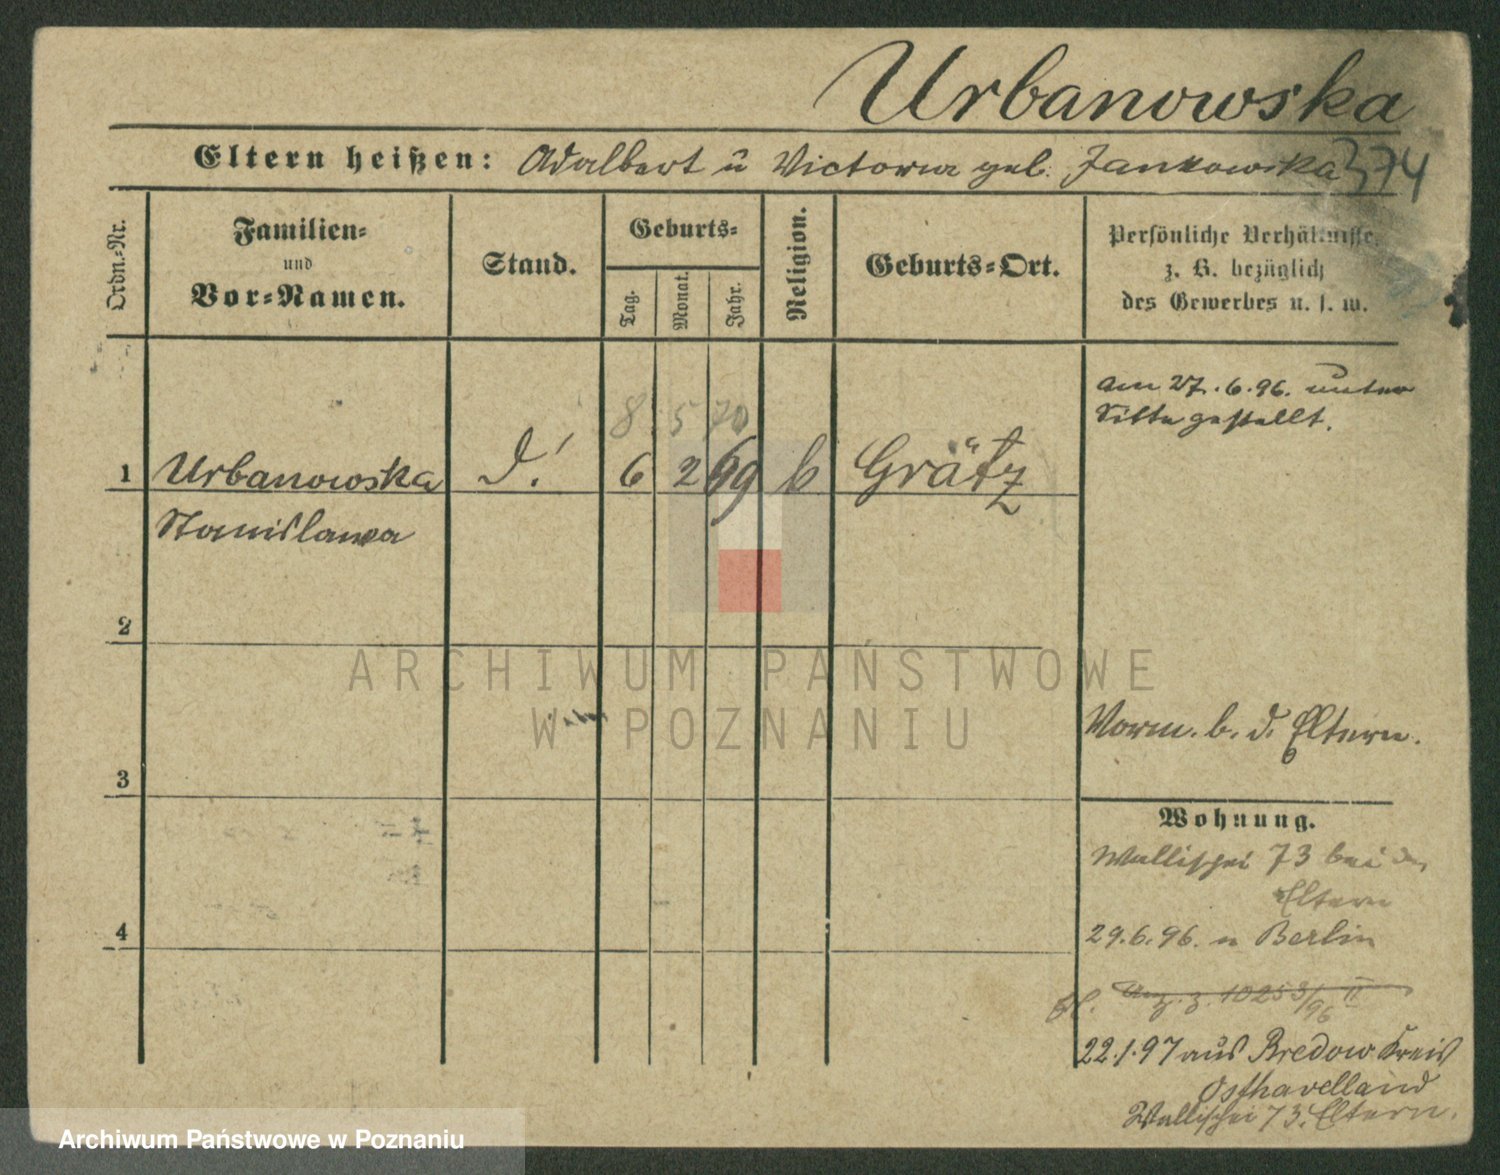 Urbanowska
Eltern heißen: Adalbert u Victoria geb. Jankowska 374
Ordn.-Nr.
Familien-
und
Vor-Namen.
Stand.
Geburts-
Tag.
Monat.
Jahr.
Religion.
Geburts-Ort.
Persönliche Verhältnisse,
z. B. bezüglich
des Gewerbes u. s. w.
am 27.6.96. unter
Sitte gestellt.
8 5 70
1 Urbanowska D.! 6 2 69 k Grätz
Stanislawa
2
3
4
Vorm. b. d. Eltern.
Wohnung.
Wallischei 73 bei den
Eltern
29.6.96. n Berlin
Anz. z. 10253/96 II
22.1.97 aus Bredow Kreis
Osthavelland
Wallischei 73. Eltern.
ARCHIWUM PAŃSTWOWE
W POZNANIU
Archiwum Państwowe w Poznaniu